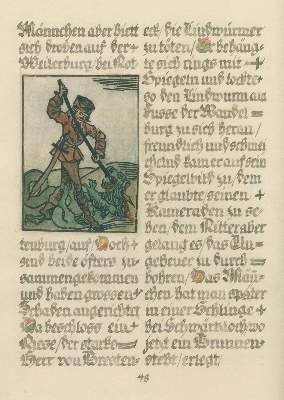 Männchen aber biett
sich droben auf der +
Weilerburg/bei Rot
tenburg/auf/Doch +
sind beide öfters zu=
sammengekommen
und haben grossen +
Schaden angerichtet
Da beschloss ein +
Riese/der starke =
Herr von Bregten=
eck/die Lindwürmer
zu töten/Er behäng=
te sich rings mit +
Spiegeln und lockte +
so den Lindwurm am
Fusse der Wandel =
burg zu sich heran/
freundlich und schmei
chelnd kam er auf sein
Spiegelbild zu/dem
er glaubte seinen +
Kameraden zu se=
hen/dem Ritter aber
gelang es das Un=
geheuer zu durch =
bohren/Das Män=
chen hat man später
in einer Schlinge +
bei Schwärzloch wo
jetzt ein Brunnen=
steht/erlegt/
48